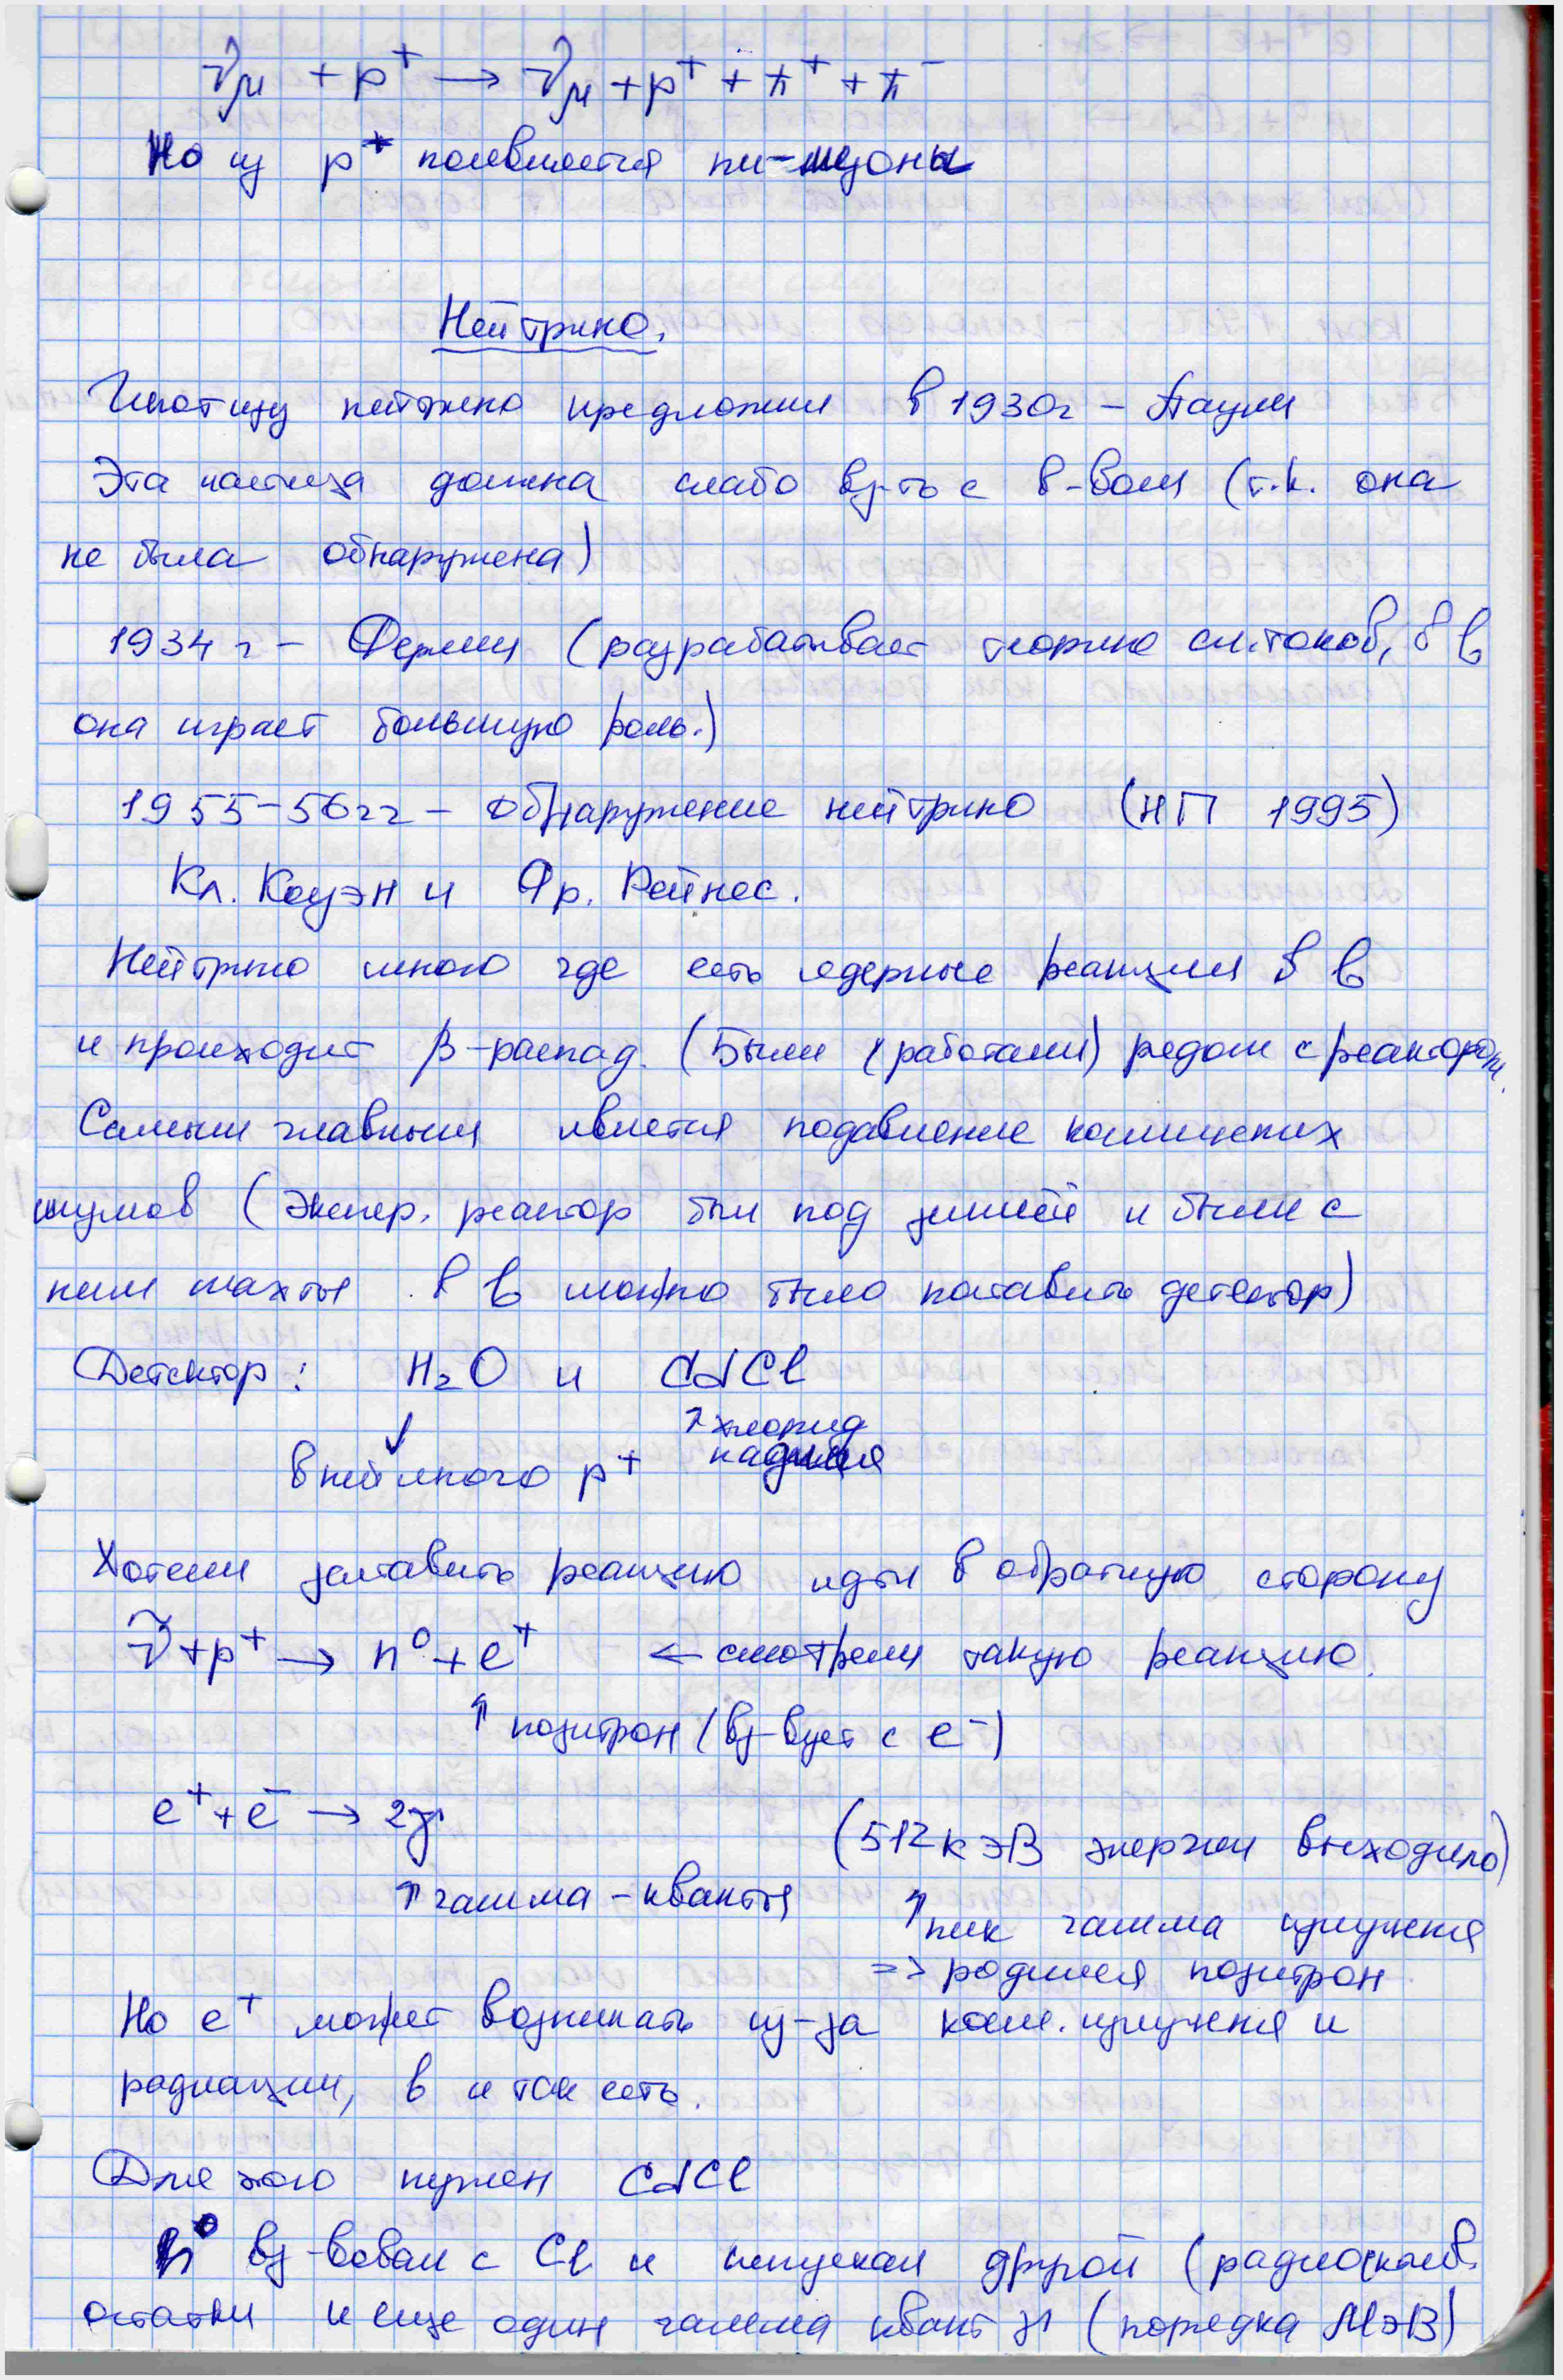 ν̃μ + p⁺ → ν̃μ + p⁺ + π⁺ + π⁻
Но из p⁺ появляется пи-мезоны
Нейтрино.
Гипотезу нейтрино предложил в 1930г – Паули
Эта частица должна слабо вз-ть с в-вом (т.к. она
не была обнаружена)
1934 г – Ферми (разрабатывает теорию сл. токов, в
она играет большую роль.)
1955-56гг – обнаружение нейтрино (НП 1995)
Кл. Коуэн и Фр. Рейнес.
Нейтрино много где есть ядерные реакции в
и происходит β-распад. (Были (работали) рядом с реактором.
Самым главным является подавление космических
шумов (Экспер. реактор был под землей и были с
ним шахты в можно было поставить детектор)
Детектор: H₂O и CdCl
↑ хлорид
кадмия
в ней много p⁺
Хотели заставить реакцию идти в обратную сторону
ν̃ + p⁺ → n⁰ + e⁺ ← смотрели такую реакцию.
↑ позитрон (вз-вует с e⁻)
e⁺ + e⁻ → 2γ
(512 кэВ энергии выходило)
↑ гамма-кванты
↑ пик гамма излучения
=> родился позитрон
Но e⁺ может возникать из-за косм. излучения и
радиации, в и так есть.
Для этого нужен CdCl
n⁰ вз-вовал с Cl и испускал другой (радиоактив.
остатки и еще один гамма квант γ (порядка МэВ)